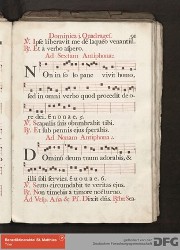 Dominica i. Quadrages.
℣. Ipse liberavit me de laqueo venantiũ.
℟. Et a verbo aspero.
Ad Sextam Antiphona:
Non in solo pane vivit homo,
in omni verbo quod procedit de o-
re dei. E u o u a e.
℣. Scapulis suis obumbrabit tibi.
℟. Et sub pennis ejus sperabis.
Ad Nonam Antiphona
Dominũ deum tuum adorabis, &
illi soli servies. E u o u a e.
℣. Scuto circumdabit te veritas ejus.
℟. Non timebis a timore nocturno.
Ad Vesp.
DFG